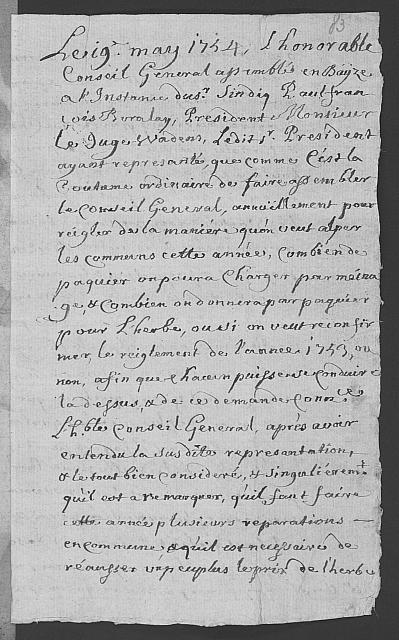 83
Le 19e. may 1754, l'honorable
Conseil General assemblés en Baÿze
a l'Instance du sr. Sindiq Paul fran
cois President Monsieur
le Juge Ledit sr. President
ayant representé, que comme c'est la
Coutume ordinaire de faire assembler
le Conseil General, annuellement pour
reigler de la maniére qu'on veut alper
les communs cette année, combien de
paquier on poura Charger par ména
ge, & combien on donnera par paquier
pour L'herbe, ou si on veut reconfir
mer, le reiglement de l'année 1753, ou
non, afin que chacun puisse se conduire
la dessus, & de ce demande
L'hble Conseil General, après avoir
entendu la susdite representation,
& le tout bien consideré, & singuliéremt
qu'il est a remarquer, qu'il faut faire
cette année plusieurs reparations —
en commune, & qu'il est necessaire de
réausser un peu plus le prix de l'herbe